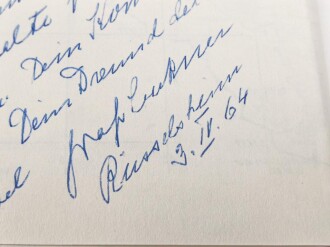 elte
. Dein Kom
Dein Freund der
Graf Luckner
Rüsselsheim
3. IV. 64